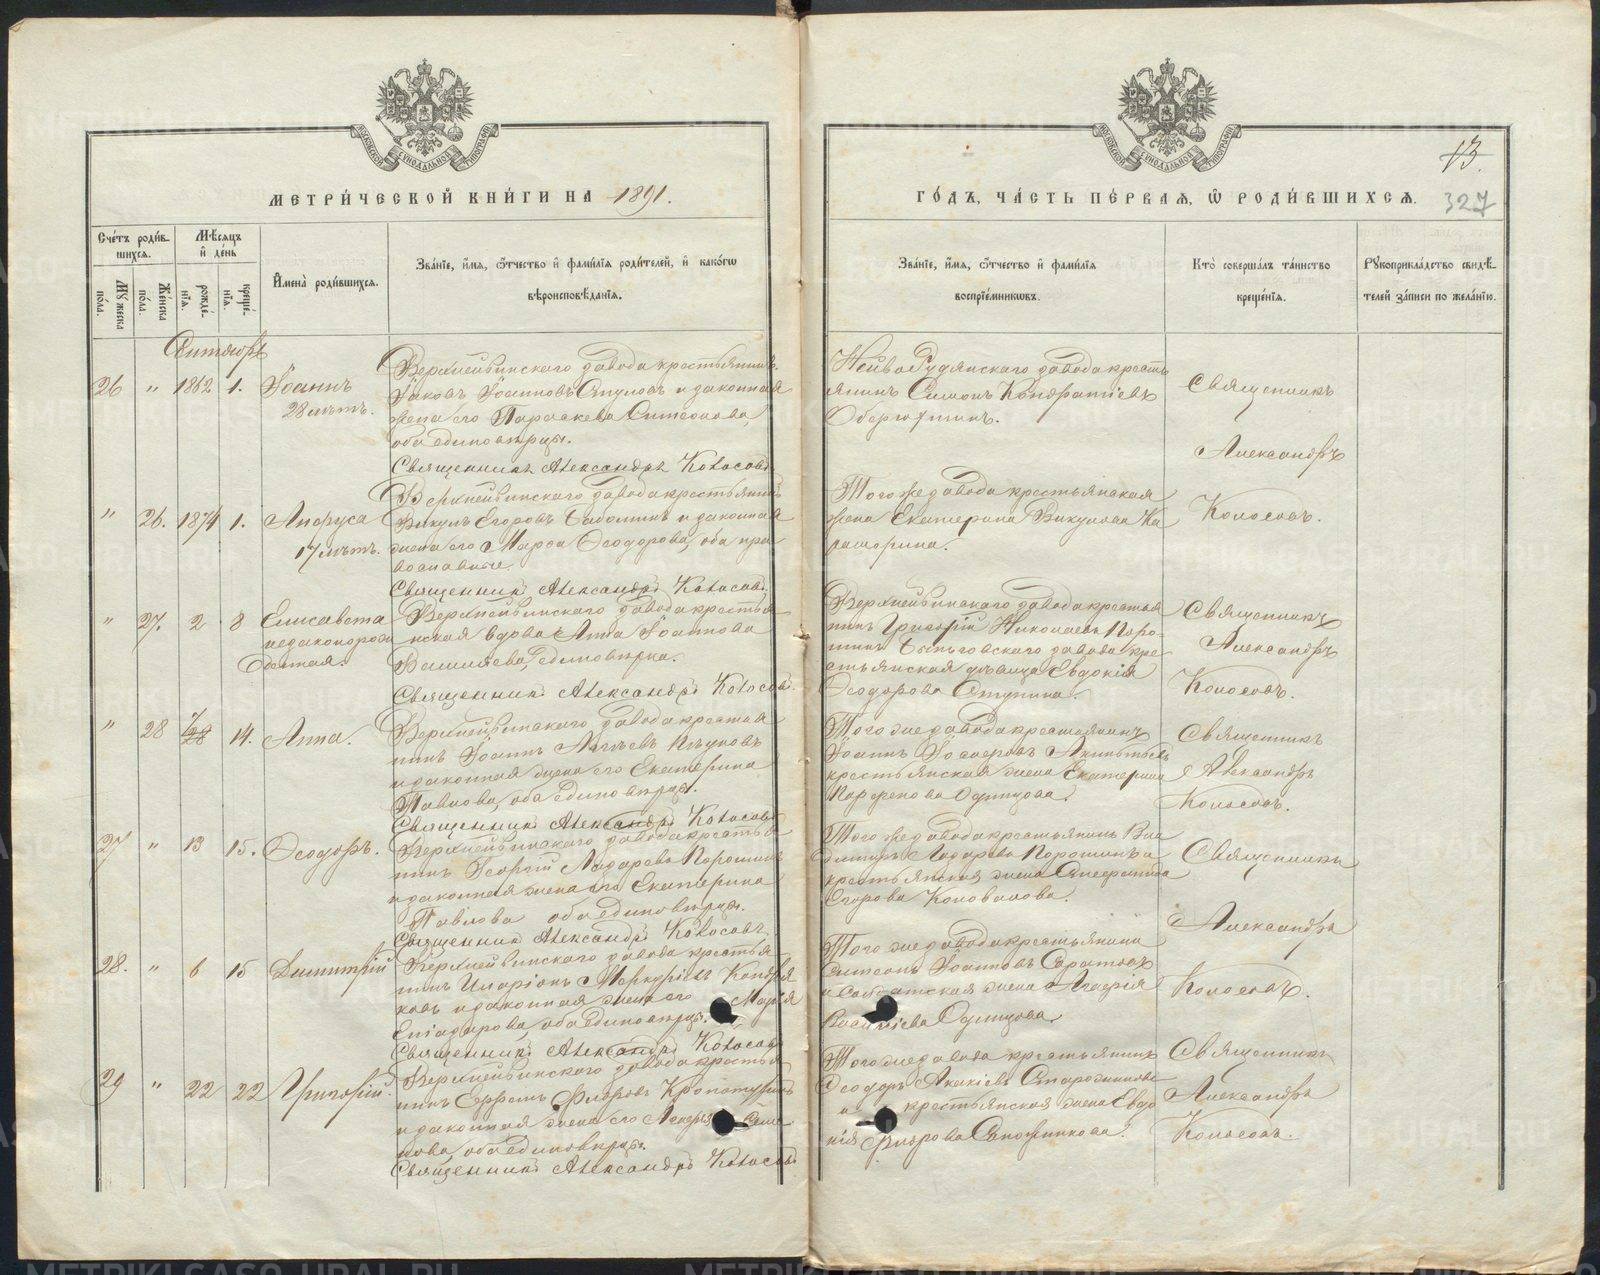 МЕТРИ́ЧЕСКОЙ КНИ́ГИ НА 1891.
Сче́тъ роди́вшихся.
Му́жеска пола.
Же́нска пола.
Мѣ́сяцъ и҆ де́нь
рожде́нїя.
креще́нїя.
И҆мена̀ роди́вшихся.
Зва́нїе, и҆́мя, ѻ҆́тчество и҆ фами́лїя роди́телей, и҆ како́гѡ
вѣроисповѣ́данїя.
Сентябрь
26 " 1862 1. Іоаннъ
28 лѣтъ.
Верхнейвинскаго завода крестьянинъ
Іаковъ Іоанновъ и законная
жена его Параскева Симеонова,
оба единовѣрцы.
Священникъ Александръ Колосовъ
" 26. 1874 1.
17 лѣтъ.
Верхнейвинскаго завода крестьянинъ
Викулъ Егоровъ и законная
жена его Марѳа Ѳеодорова, оба пра
вославные.
Священникъ Александръ Колосовъ
" 27. 2 8 Елисавета
незаконорож
денная.
Верхнейвинскаго завода крестья
нская вдова Анна Іоаннова
единовѣрка.
Священникъ Александръ Колосовъ.
" 28 14. Анна.
Верхнейвинскаго завода крестья
нинъ Іоаннъ
и законная жена его Екатерина
Павлова, оба единовѣрцы.
Священникъ Александръ Колосовъ
27 " 13 15. Ѳеодоръ.
Верхнейвинскаго завода крестья
нинъ Георгій Лазаревъ Порошинъ
и законная жена его Екатерина
Павлова оба единовѣрцы.
Священникъ Александръ Колосовъ
28. " 6 15 Димитрій
Верхнейвинскаго завода крестья
нинъ Иларіонъ Меркурьевъ
и законная жена его Марія
оба единовѣрцы.
Священникъ Александръ Колосовъ
29 " 22 22 Григорій.
Верхнейвинскаго завода крестья
нинъ Ефремъ Флоровъ
и законная жена его
нова, оба единовѣрцы.
Священникъ Александръ Колосовъ
ГО́ДЪ, ЧА́СТЬ ПЕ́РВАЯ, Ѡ҆ РОДИ́ВШИХСЯ.
13.
327
Зва́нїе, и҆́мя, ѻ҆́тчество и҆ фами́лїя
воспрїе́мниковъ.
Кто̀ соверша́лъ та́инство
креще́нїя.
Рꙋкоприкла́дство свидѣ́телей за́писи по жела́нїю.
Нейво Рудянскаго завода кресть
янинъ Симеонъ Кондратіевъ
Священникъ
Александръ
Колосовъ.
Того же завода крестьянская
жена Екатерина Викулова
Верхнейвинскаго завода крестья
нинъ Григорій Николаевъ Поро-
шинъ завода кре
стьянская дѣвица Евдокія
Ѳеодорова
Священникъ
Александръ
Колосовъ.
Того же завода крестьянинъ
Іоаннъ
крестьянская жена Екатерина
Парѳенова Одинцова.
Священникъ
Александръ
Колосовъ.
Того же завода крестьянинъ Вла
димиръ Лазаревъ Порошинъ и
крестьянская жена
Егорова Коновалова.
Священникъ
Александръ
Колосовъ.
Того же завода крестьянинъ
Симеонъ Іоанновъ
и солдатская жена
Василіева Одинцова.
Того же завода крестьянинъ
Ѳеодоръ Акакіевъ
и крестьянская жена Евдо
кія Флорова Сапожникова.
Священникъ
Александръ
Колосовъ.
METRIKI.GASO-URAL.RU